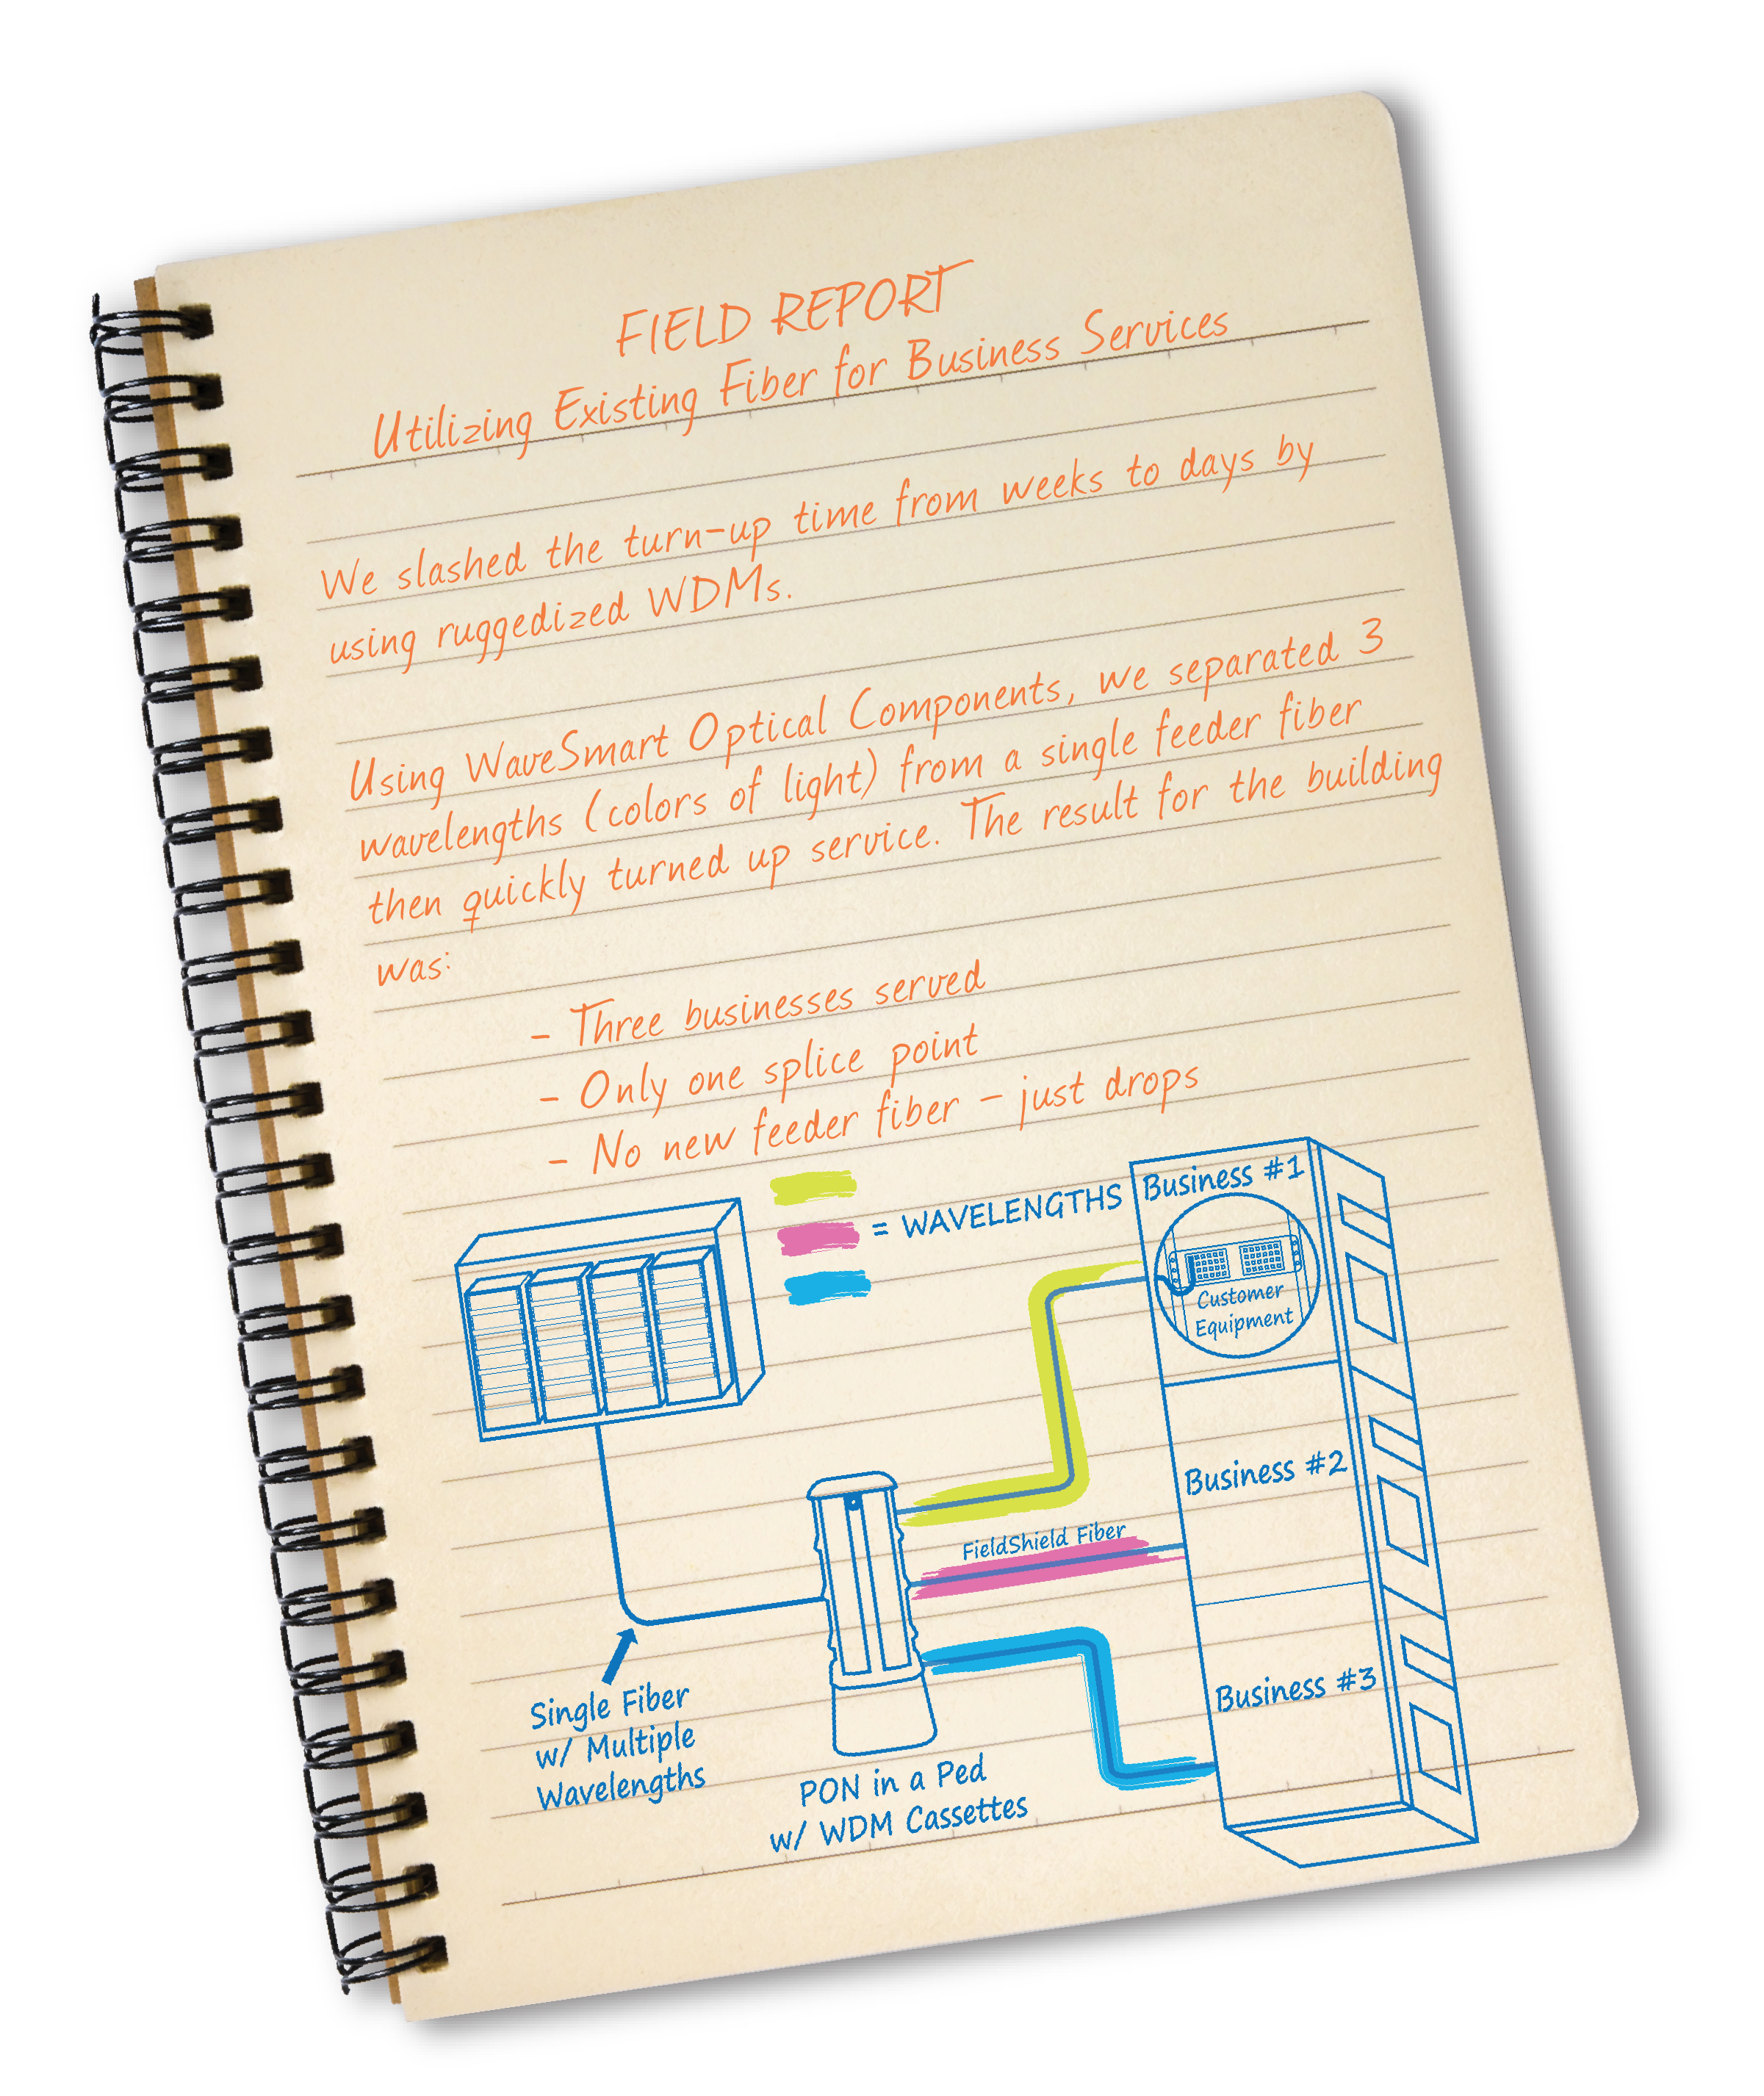 FIELD REPORT
Utilizing Existing Fiber for Business Services
We slashed the turn-up time from weeks to days by
using ruggedized WDMs.
Using WaveSmart Optical Components, we separated 3
wavelengths (colors of light) from a single feeder fiber
then quickly turned up service. The result for the building
was:
- Three businesses served
- Only one splice point
- No new feeder fiber - just drops
= WAVELENGTHS
Business #1
Customer
Equipment
Business #2
FieldShield Fiber
Business #3
Single Fiber
w/ Multiple
Wavelengths
PON in a Ped
w/ WDM Cassettes